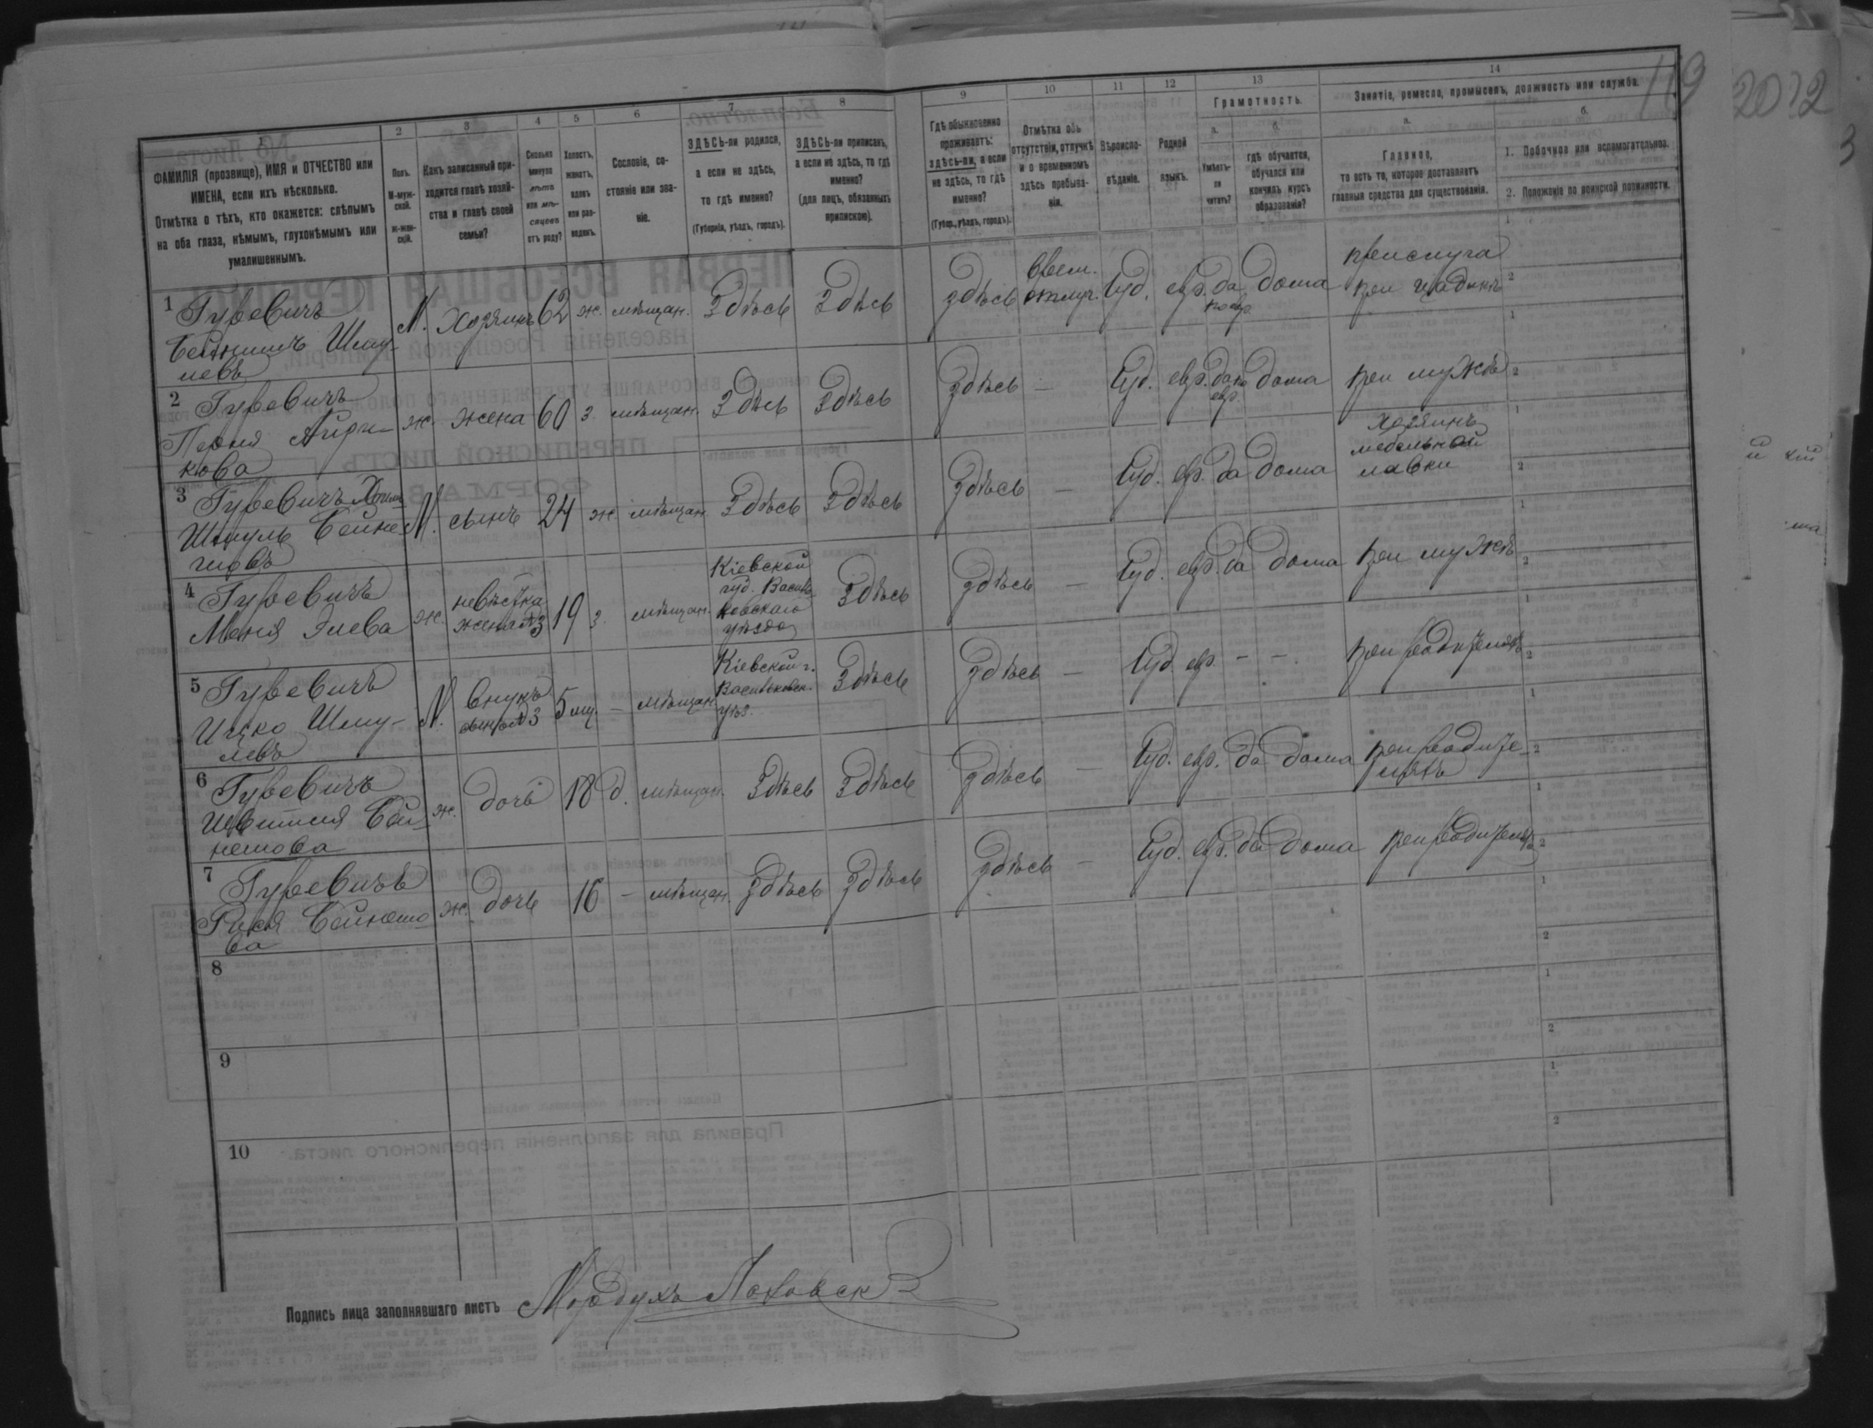 119
2072
3
1
2
3
4
5
6
7
8
9
10
11
12
13
14
ФАМИЛІЯ (прозвище), ИМЯ и ОТЧЕСТВО или
ИМЕНА, если ихъ нѣсколько.
Отмѣтка о тѣхъ, кто окажется: слѣпымъ
на оба глаза, нѣмымъ, глухонѣмымъ или
умалишеннымъ.
Полъ.
М-муж-
ской.
Ж-жен-
скій.
Какъ записанный при-
ходится главѣ хозяй-
ства и главѣ своей
семьи?
Сколько
минуло
лѣтъ
или мѣ-
сяцевъ
отъ роду?
Холостъ,
женатъ,
вдовъ
или раз-
веденъ.
Сословіе, со-
стояніе или зва-
ніе.
ЗДѢСЬ-ли родился,
а если не здѣсь,
то гдѣ именно?
(Губернія, уѣздъ, городъ).
ЗДѢСЬ-ли приписанъ,
а если не здѣсь, то гдѣ
именно?
(для лицъ, обязанныхъ
припискою).
Гдѣ обыкновенно
проживаетъ:
здѣсь-ли, а если
не здѣсь, то гдѣ
именно?
(Губер., уѣздъ, городъ).
Отмѣтка объ
отсутствіи, отлучкѣ
и о временномъ
здѣсь пребыва-
ніи.
Вѣроиспо-
вѣданіе.
Родной
языкъ.
Грамотность.
а.
Умѣетъ-
ли
читать?
б.
гдѣ обучается,
обучался или
кончилъ курсъ
образованія?
Занятіе, ремесло, промыселъ, должность или служба.
а.
Главное,
то есть то, которое доставляетъ
главныя средства для существованія.
б.
1. Побочное или вспомогательное.
2. Положеніе по воинской повинности.
1 Гуревичъ
Бейнишъ Шму-
левъ
М. Хозяинъ 62 ж. мѣщан. Здѣсь Здѣсь здѣсь Врем. отлуч. Іуд. евр. да по евр. дома прислуга
2 Гуревичъ
ж. жена 60 з. мѣщан. Здѣсь Здѣсь здѣсь — Іуд. евр. да по евр. дома при мужѣ
3 Гуревичъ
Шмуль Бейне-
шовъ
М. сынъ 24 ж. мѣщан. Здѣсь Здѣсь здѣсь — Іуд. евр. да дома Хозяинъ
мебельной
лавки
4 Гуревичъ
Меня Элева
ж. невѣстка
жена №3 19 з. мѣщан. Кіевской
губ. Василь-
ковскаго
уѣзда Здѣсь здѣсь — Іуд. евр. да дома при мужѣ
5 Гуревичъ
Ицко Шму-
левъ
М. внукъ
сынъ №3 5 мѣ. — мѣщан. Кіевской г.
Васильковск.
уѣз. Здѣсь здѣсь — Іуд. евр. — — при родителяхъ
6 Гуревичъ
Бей-
нешова
ж. дочь 18 д. мѣщан. Здѣсь Здѣсь здѣсь — Іуд. евр. да дома при родите-
ляхъ
7 Гуревичъ
Бейнешо-
ва
ж. дочь 16 — мѣщан. Здѣсь Здѣсь здѣсь — Іуд. евр. да дома при родителяхъ
8
9
10
Подпись лица заполнявшаго листъ Мордухъ